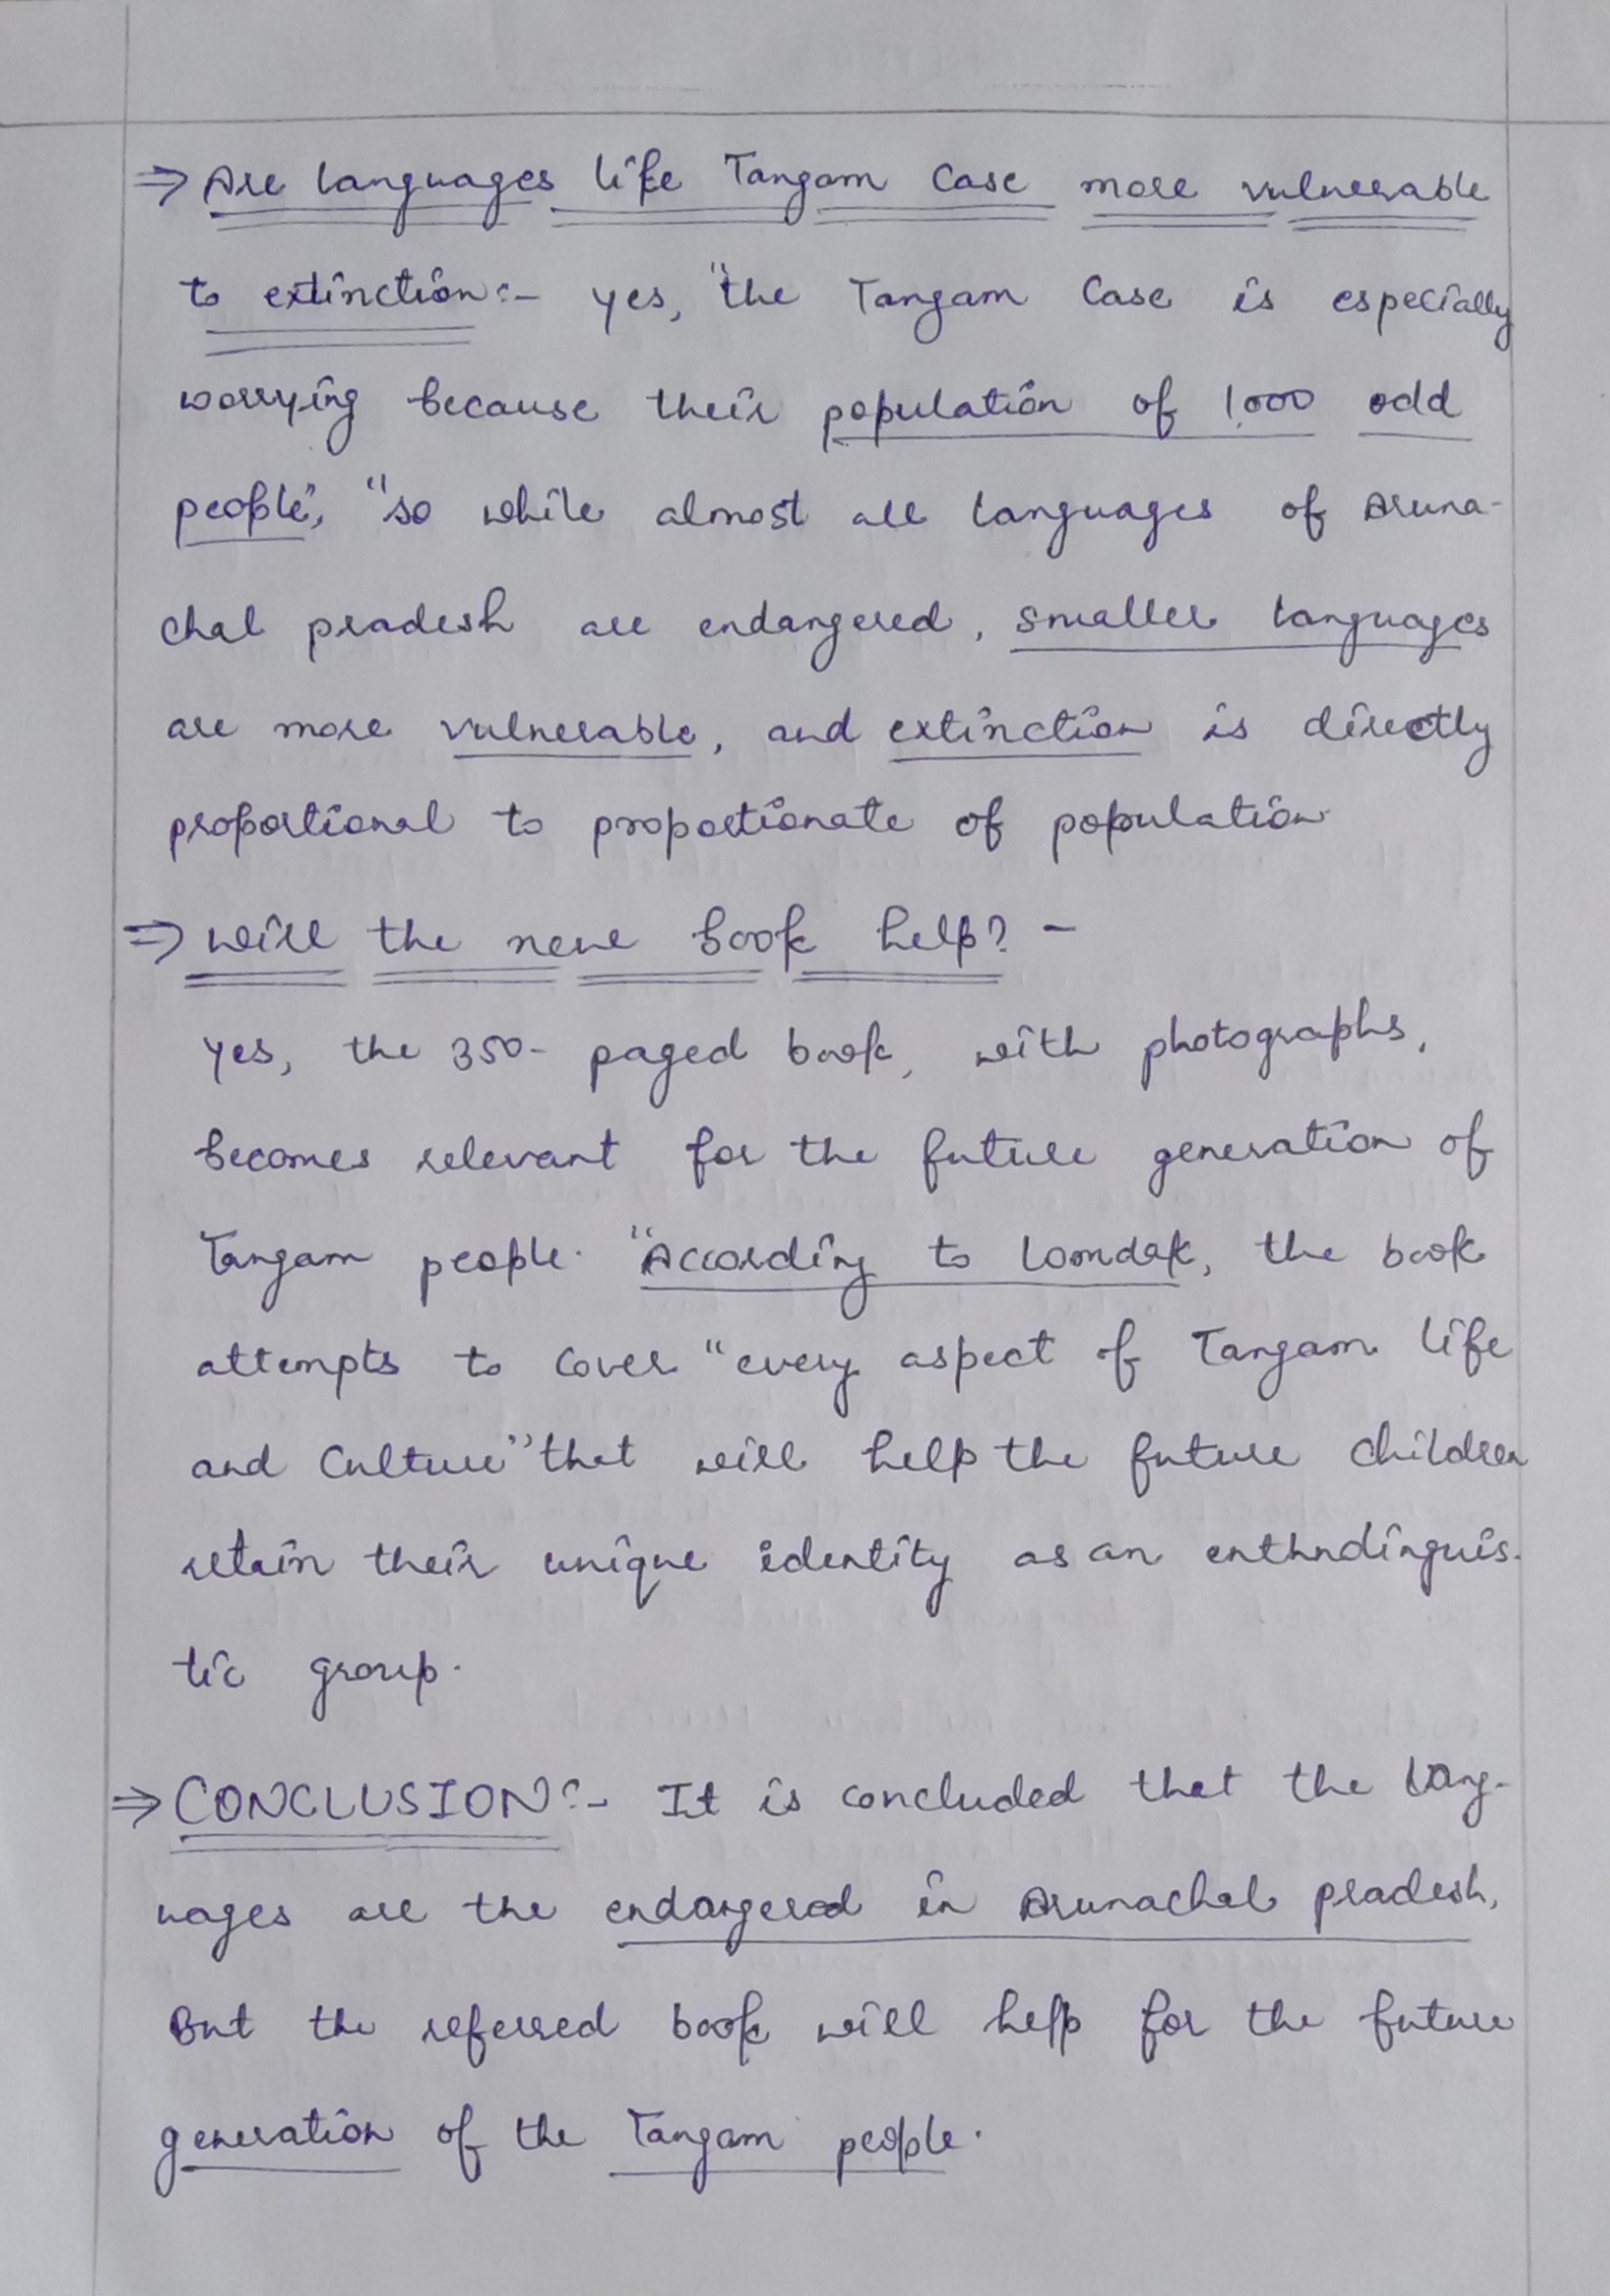 ⇒ Are languages like Tangam Case more vulnerable
to extinction:- yes, "the Tangam Case is especially
worrying because their population of 1,000 odd
people", "so while almost all languages of Aruna-
chal pradesh are endangered, smaller languages
are more vulnerable, and extinction is directly
proportional to proportionate of population.
⇒ will the new book help? -
yes, the 350- paged book, with photographs,
becomes relevant for the future generation of
Tangam people. "According to Lomdak, the book
attempts to cover "every aspect of Tangam life
and Culture" that will help the future children
retain their unique identity as an enthndinguis-
tic group.
⇒ CONCLUSION:- It is concluded that the lang-
uages are the endangered in Arunachal pradesh,
But the referred book will help for the future
generation of the Tangam people.